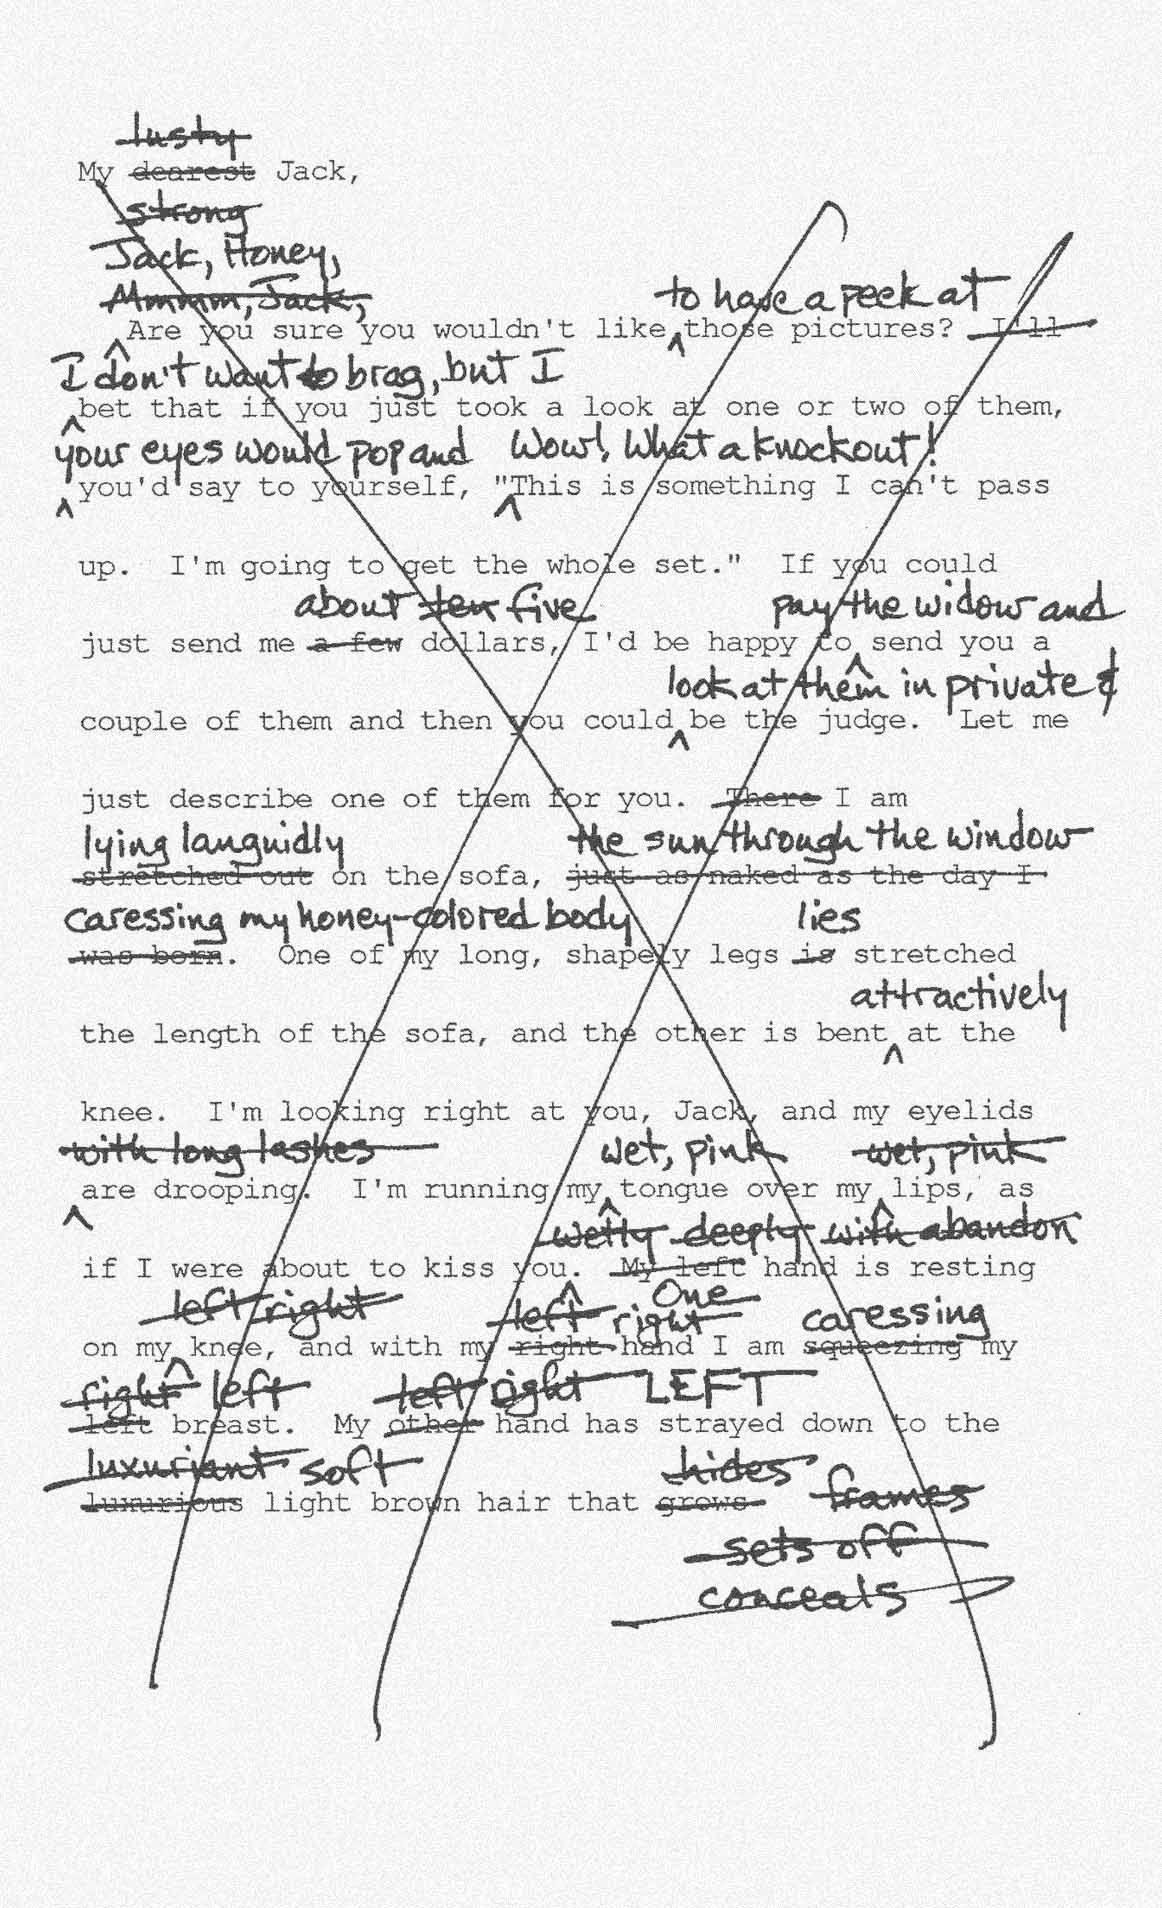 lusty
My dearest Jack,
strong
Jack, Honey,
Mmmm, Jack,
to have a peek at
Are you sure you wouldn't like those pictures? I'll
I don't want to brag, but I
bet that if you just took a look at one or two of them,
your eyes would pop and Wow! What a knockout!
you'd say to yourself, "This is something I can't pass
up. I'm going to get the whole set." If you could
about ten five pay the widow and
just send me a few dollars, I'd be happy to send you a
look at them in private &
couple of them and then you could be the judge. Let me
just describe one of them for you. There I am
lying languidly the sun through the window
stretched out on the sofa, just as naked as the day I
caressing my honey-colored body lies
was born. One of my long, shapely legs is stretched
attractively
the length of the sofa, and the other is bent at the
knee. I'm looking right at you, Jack, and my eyelids
with long lashes wet, pink wet, pink
are drooping. I'm running my tongue over my lips, as
wetly deeply with abandon
if I were about to kiss you. My left hand is resting
One
left right left right caressing
on my knee, and with my right hand I am squeezing my
right left left right LEFT
left breast. My other hand has strayed down to the
luxuriant soft hides
luxurious light brown hair that grows frames
sets off
conceals